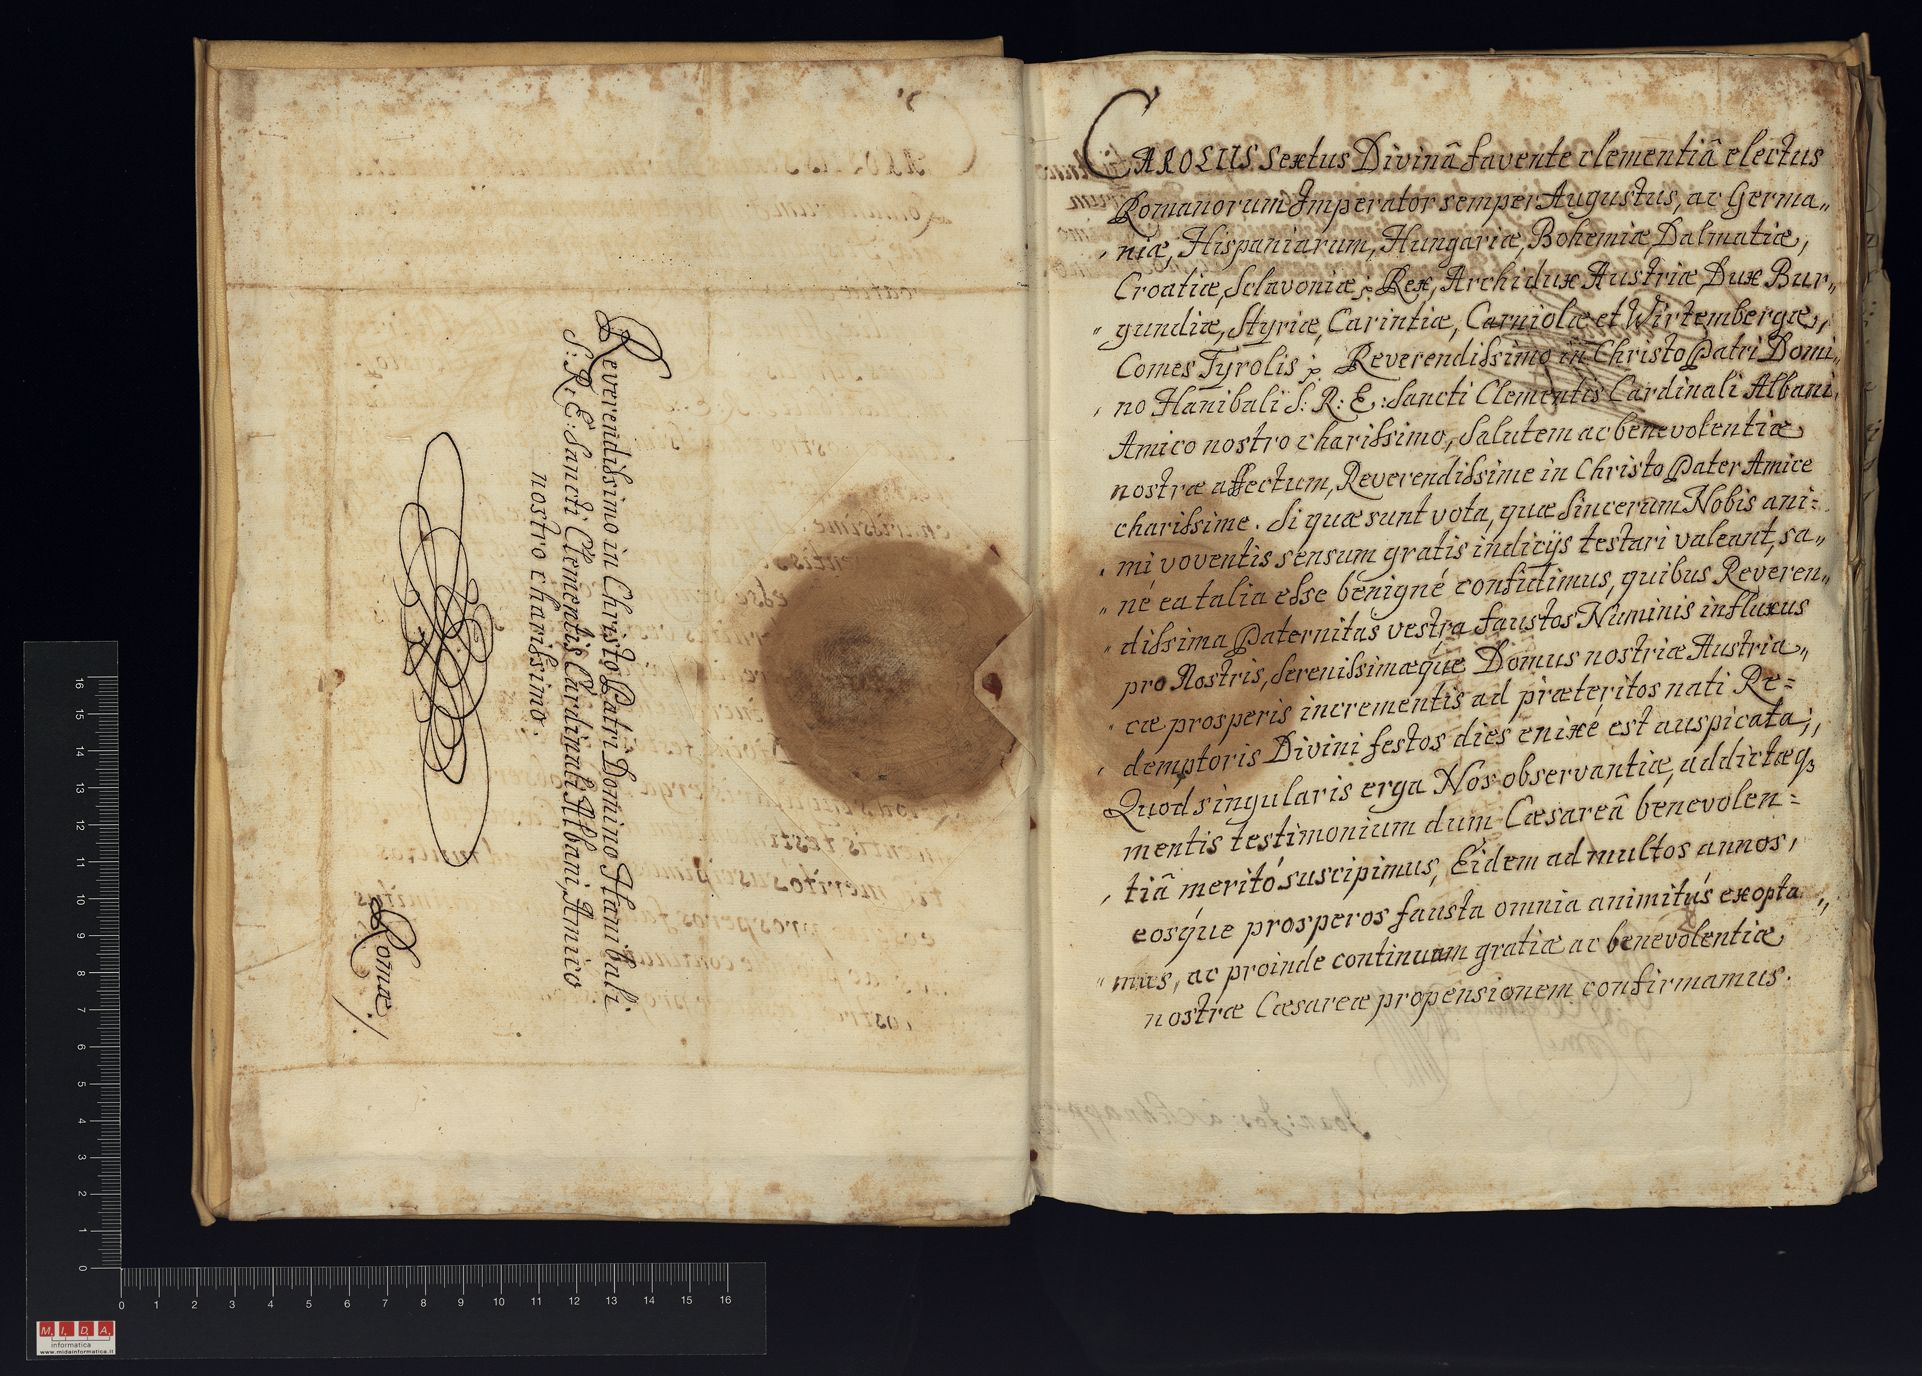 Reverendissimo in Christo Patri Domino Hanibali
S: R: E: Sancti Clementis Cardinali Albani, Amico
nostro charissimo.
Romæ
CAROLUS Sextus Divinâ favente clementiâ electus
Romanorum Imperator semper Augustus, ac Germa„
niæ, Hispaniarum, Hungariæ, Bohemiæ, Dalmatiæ,
Croatiæ, Sclavoniæ Rex, Archidux Austriæ Dux Bur„
„ gundiæ, Styriæ, Carintiæ, Carniolæ et Wirtembergæ,
Comes Tyrolis Reverendissimo in Christo Patri Domi„
no Hanibali S: R: E: Sancti Clementis Cardinali Albani,
Amico nostro charissimo, Salutem ac benevolentiæ
nostræ affectum, Reverendissime in Christo Pater Amice
charissime. Si quæ sunt vota, quæ Sincerum Nobis ani=
mi voventis sensum gratis indicijs testari valeant, sa„
„ né ea talia esse benigné confidimus, quibus Reveren„
„ dissima Paternitas vestra faustos Numinis influxus
pro Nostris, Serenissimæque Domus nostræ Austria„
„ cæ prosperis incrementis ad præteritos nati Re=
demptoris Divini festos dies enixé est auspicata;
Quod singularis erga Nos observantiæ, addictæq3
mentis testimonium dum Cæsareâ benevolen=
tiâ meritó suscipimus, Eidem ad multos annos,
eosque prosperos fausta omnia animitús exopta„
„ mus, ac proinde continuam gratiæ ac benevolentiæ
nostræ Cæsareæ propensionem confirmamus.
16
15
14
13
12
11
10
9
8
7
6
5
4
3
2
1
0
0 1 2 3 4 5 6 7 8 9 10 11 12 13 14 15 16
M. I. D. A.
informatica
www.midainformatica.it